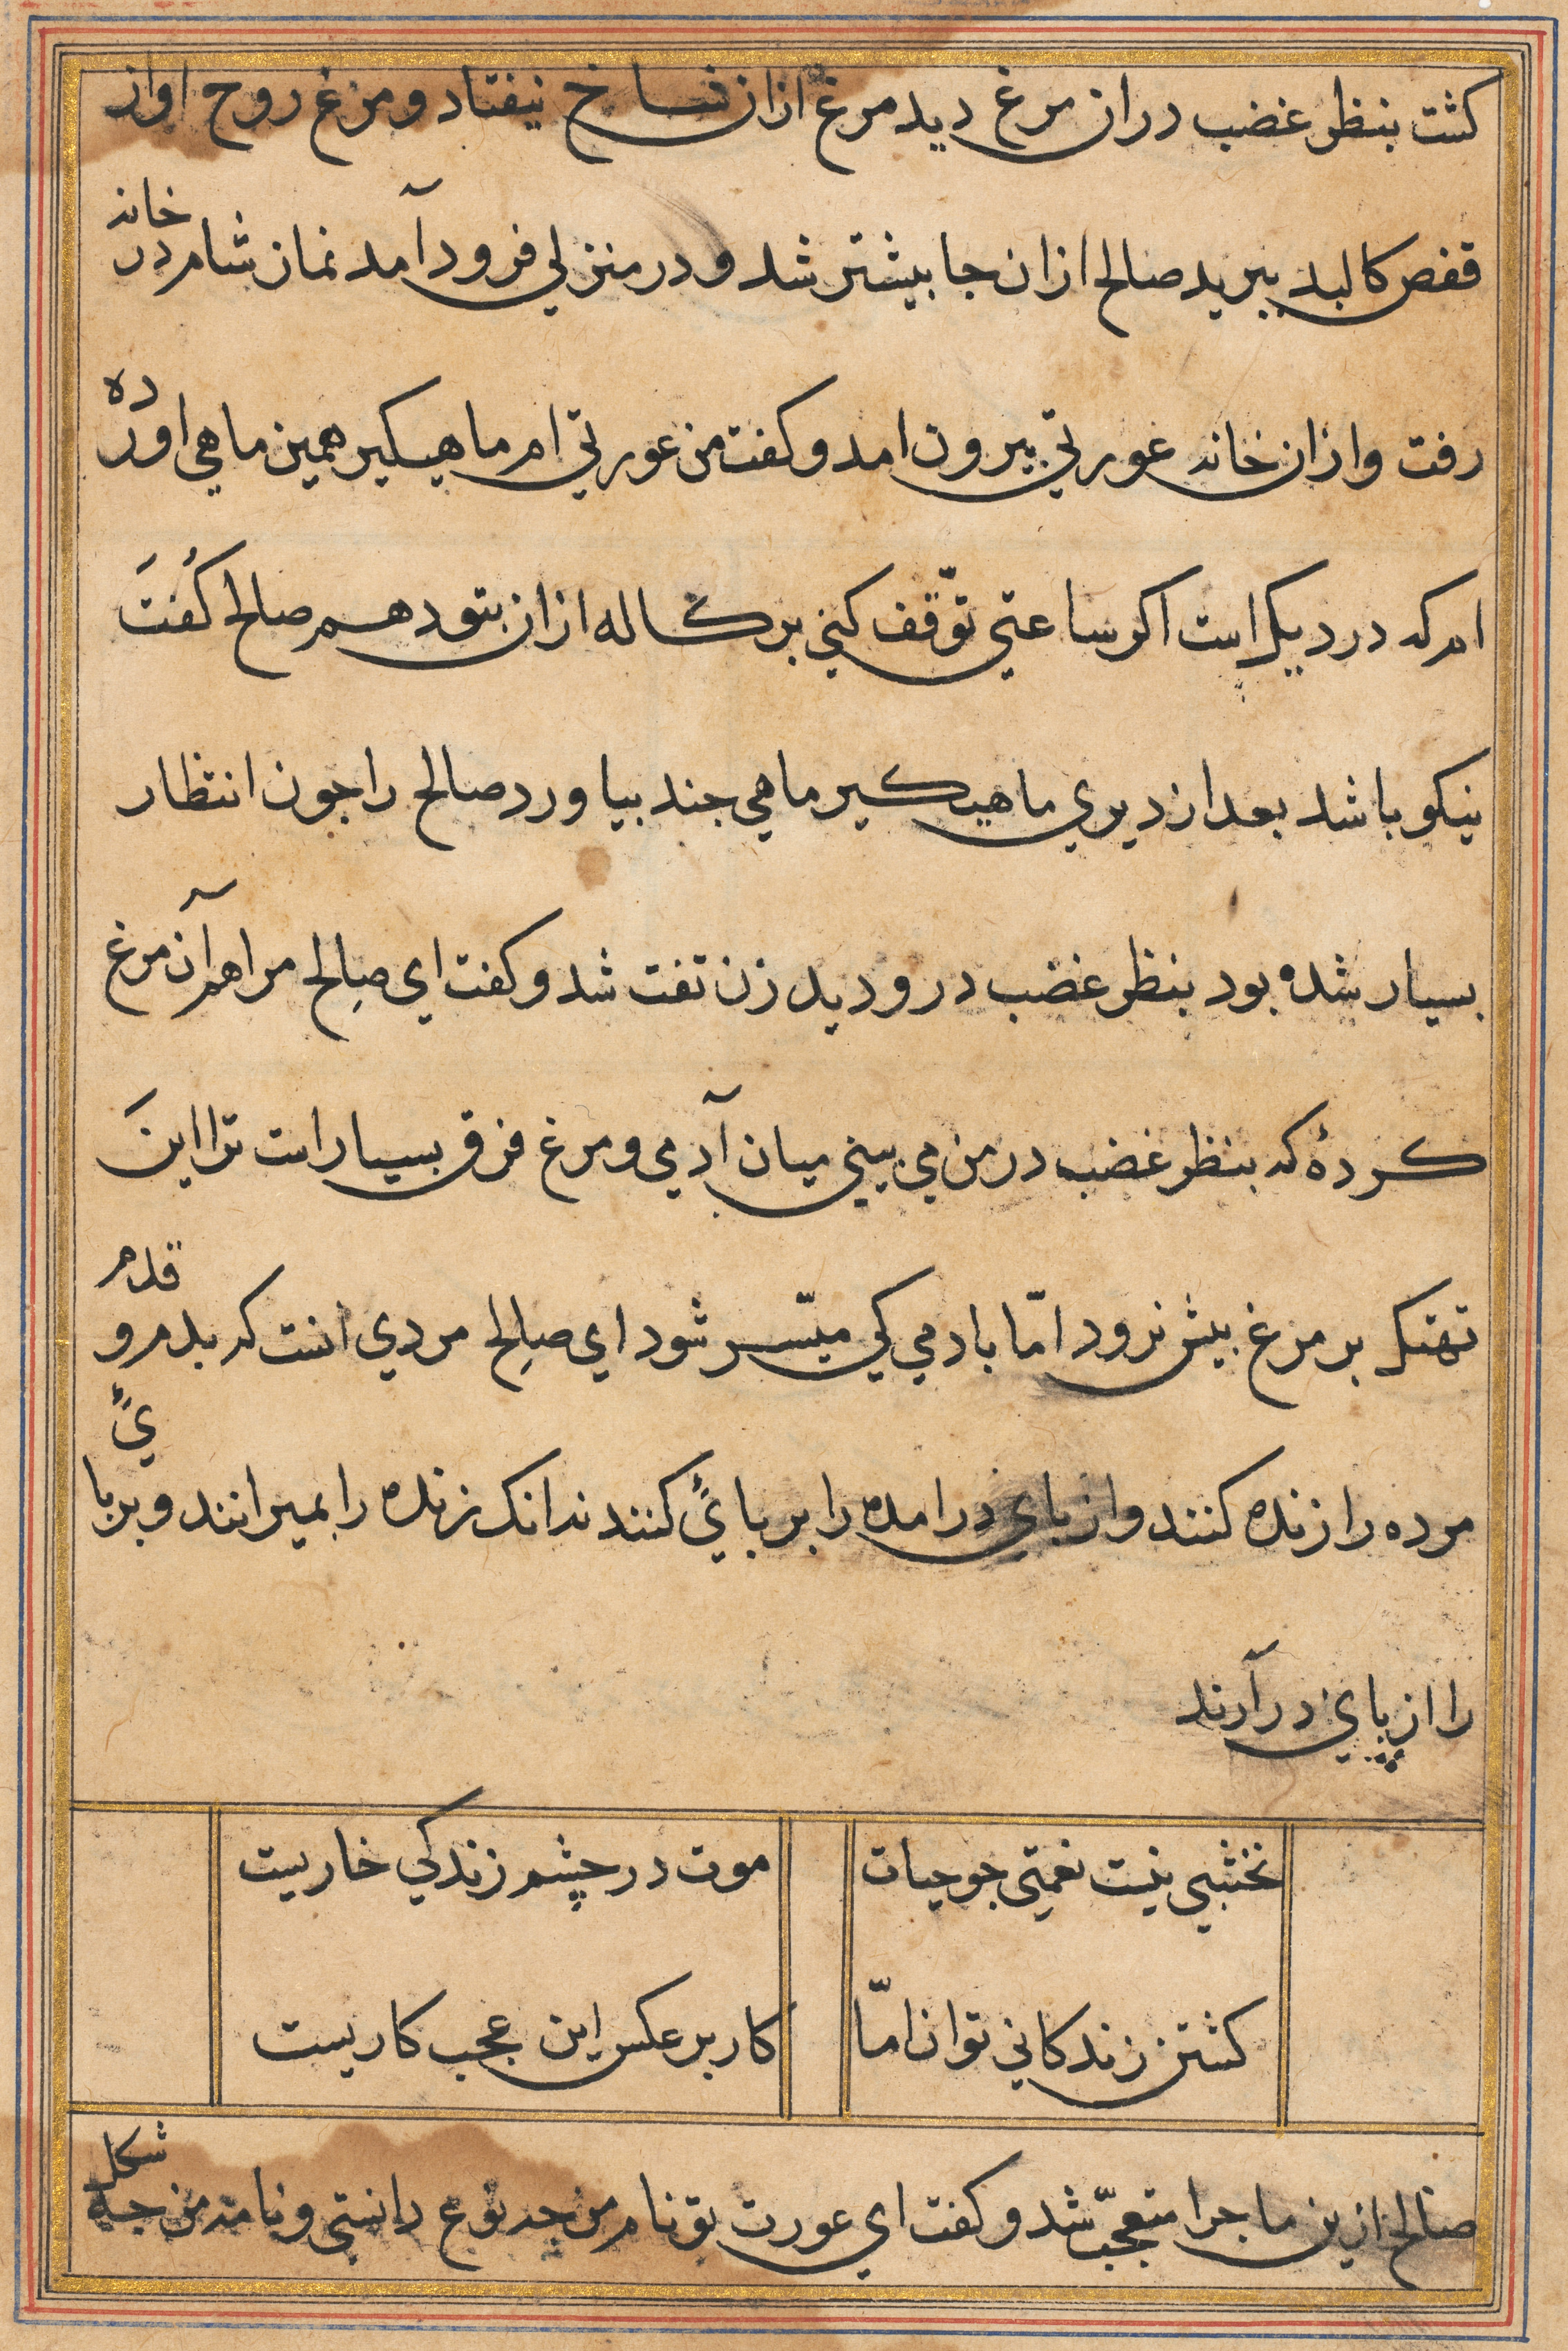 كشت بنظر غضب در ان مرغ ديد مرغ ازان شاخ بيفتاد و مرغ روح او از
قفص كالبد ببريد صالح ازان جا بيشتر شد و در منزلي فرود آمد نماز شام در خانه
رفت و ازان خانه عورتي بيرون امد و كفت من عورتي ام ماهيكير همين ماهي اورده
ام كه در ديك است اكر ساعتي توّقف كني بركاله ازان بتو دهم صالح كُفتَ
نيكو باشد بعد از ديري ماهيكير ماهي جند بياورد صالح را جون انتظار
بسيار شده بود بنظر غضب در و ديد زن تفت شد و كفت اي صالِح مرا هم آن مرغ
كردهٔ كه بنظر غضب در من مي بيني ميان آدمي و مرغ فرق بسيار است ترا اين
تهتك بر مرغ بيش نرود امّا بادمي كي ميّسر شود اي صالِح مردي انست كه بدم و قدم
مرده را زنده كنند و از باي در امده را بر بائ كنند نه انك زنده را بميرانند و بر بائ
را از پاي در آرند
نخشبي نيست نعمتي جو حيات
موت در چشم زندكي خاريست
كشتن زندكاني توان امّا
كار بر عكس اين عجب كاريست
صالح ازين ماجرا متعجّب شد و كفت اي عورت تو نام من جه نوع دانستي و نامه من جه شكل